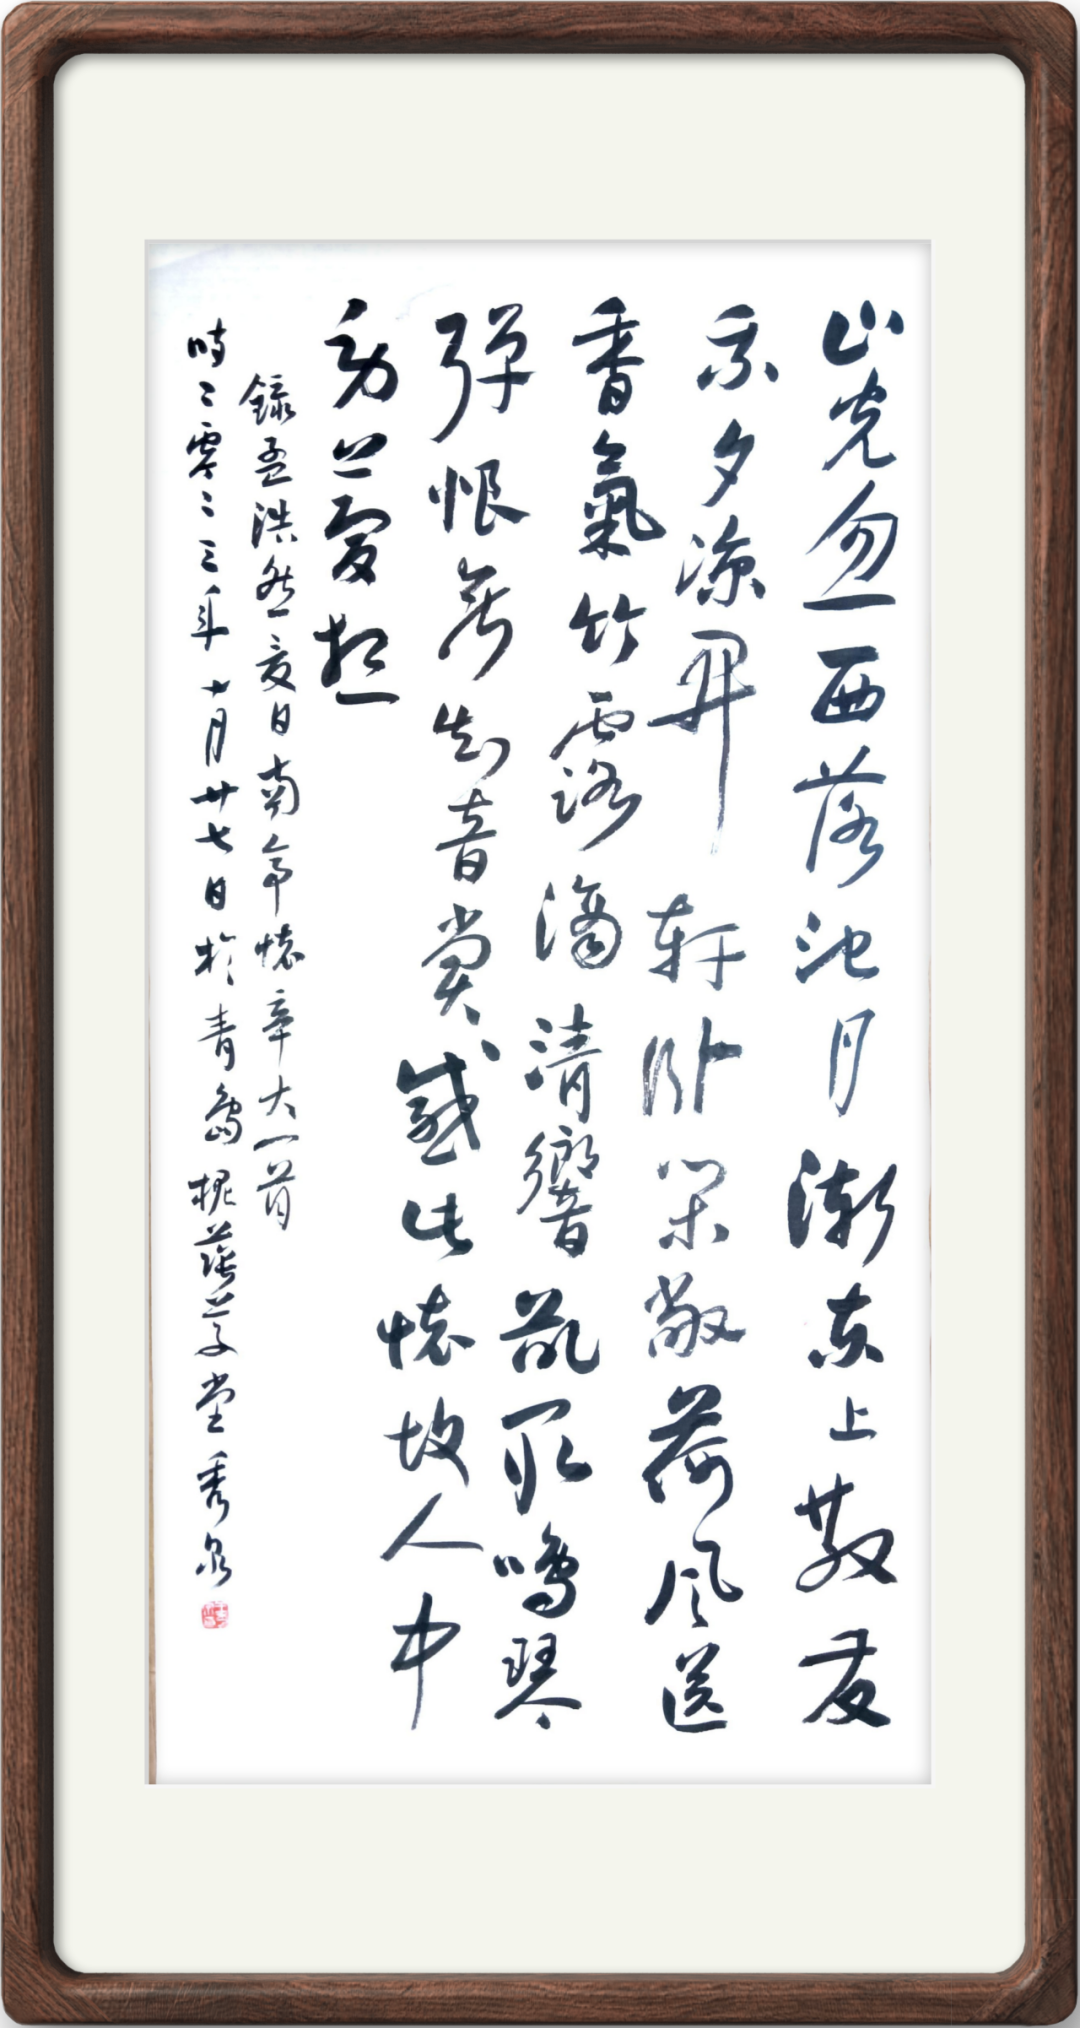 山光忽西落池月漸东上散发
乘夕凉開軒卧闲敞荷风送
香氣竹露滴清響欲取鳴琴
彈恨无知音赏感此懷故人中
夢想
錄孟浩然夏日南亭懷辛大一首
時二零二三年十月廿七日於青島槐蔭草堂秀泉